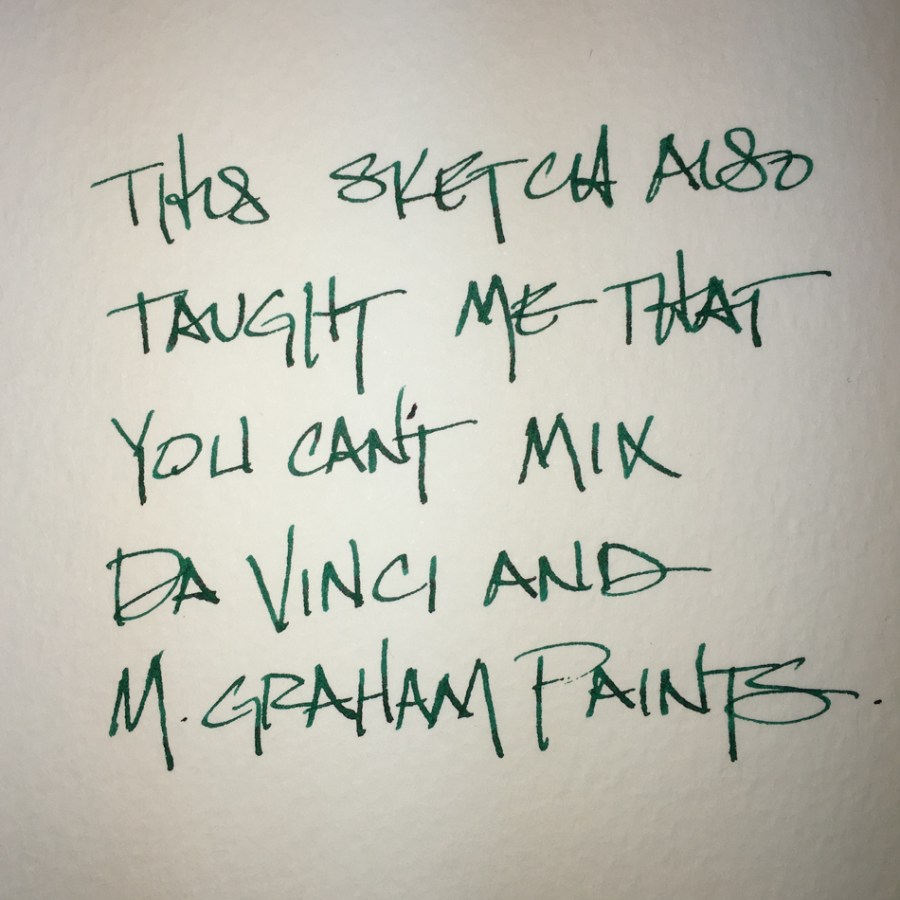 THIS SKETCH ALSO
TAUGHT ME THAT
YOU CAN'T MIX
DA VINCI AND
M. GRAHAM PAINTS.